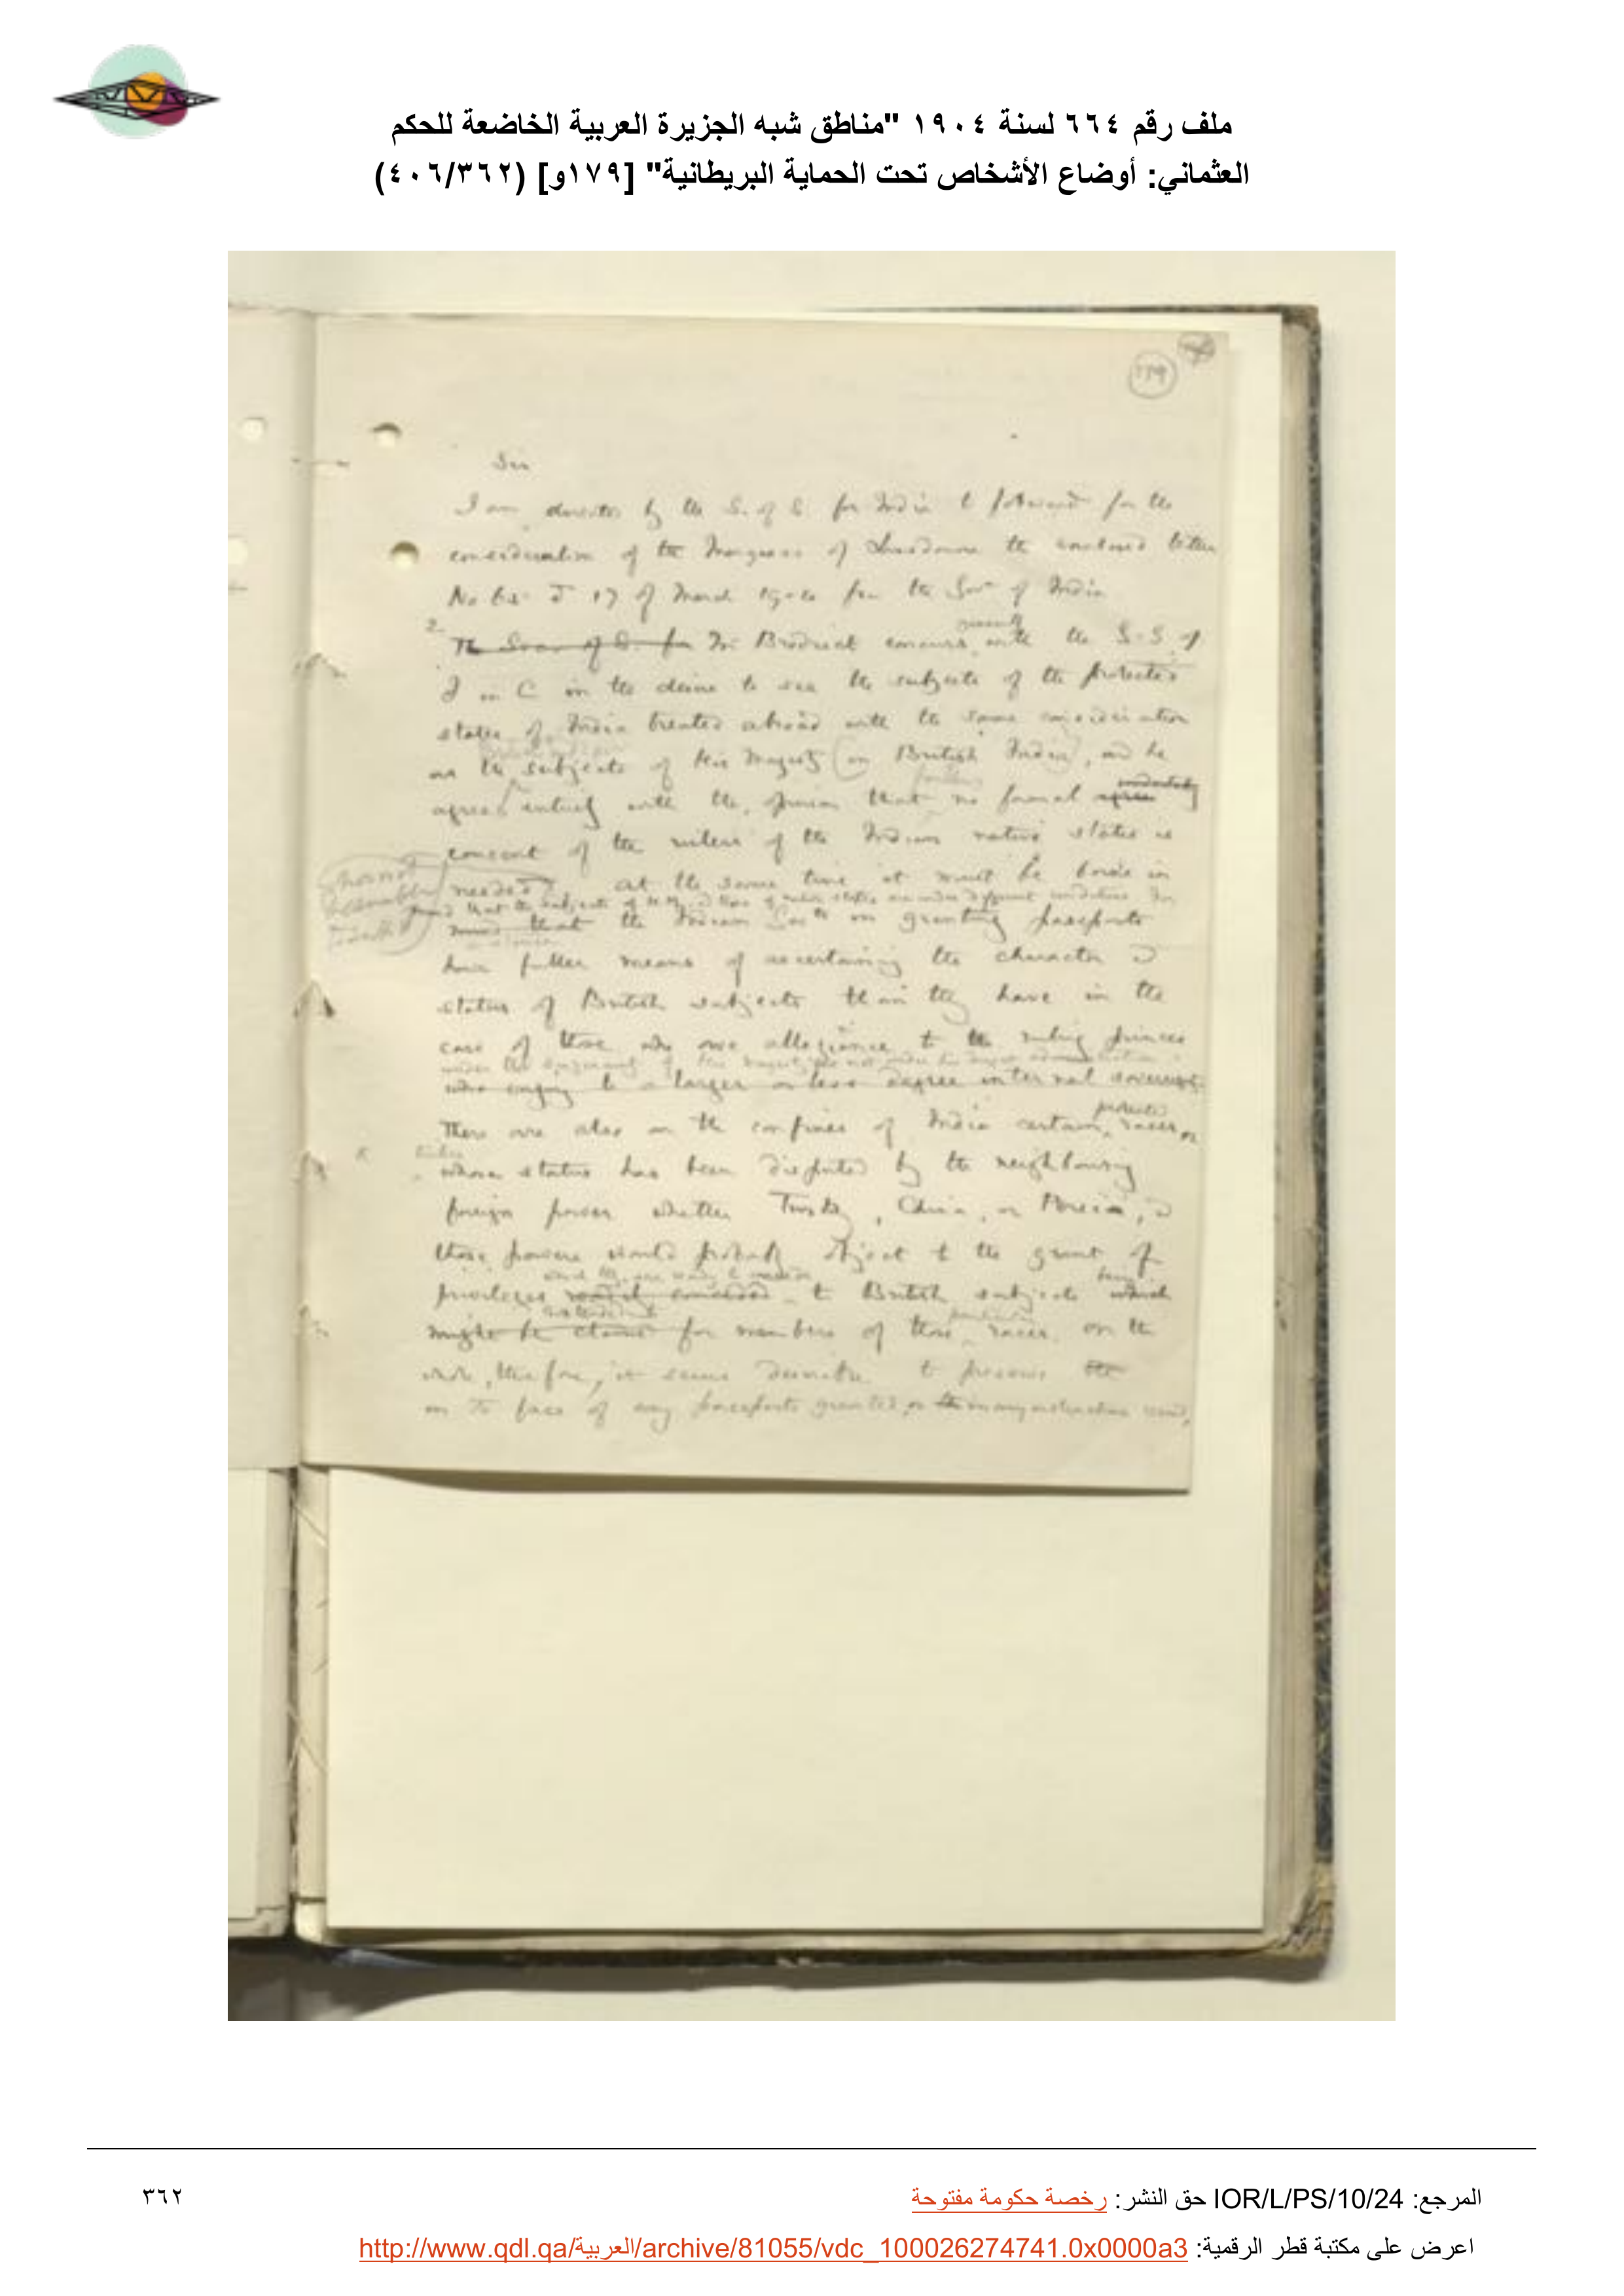 ملف رقم ٦٦٤ لسنة ١٩٠٤ "مناطق شبه الجزيرة العربية الخاضعة للحكم
العثماني: أوضاع الأشخاص تحت الحماية البريطانية" [١٧٩و] (٤٠٦/٣٦٢)
179
Sir
I am directed by the S. of S. for India to forward for the
consideration of the Marquess of Lansdowne the enclosed letter
No 64 17 of March from the Govt of India
2.
generally
The of S. for Mr Brodrick concurs with the
in C in the desire to see the subjects of the protected
states of India treated abroad with the same consideration
as the subjects of His Majesty in British India, and he
agrees entirely with the opinion that no formal
consent of the rulers of the Indian native states is
needed at the same time it must be borne in
that the subjects of native states are under different conditions
that the Indian on granting passports
have fuller means of ascertaining the character &
status of British subjects than they have in the
case of those who owe allegiance to the ruling princes
under the of His Majesty
who enjoy to a larger or less degree internal sovereignty
protected
There are also on the confines of India certain races or
tribes
whose status has been disputed by the neighbouring
foreign power whether Turkey, China, or Persia, &
those powers would probably object to the grant of
privileges to British subjects being which
might be claimed for members of those races. On the
whole, therefore, it seems desirable to the
on the face of any passports granted, or in any instructions
المرجع: IOR/L/PS/10/24 حق النشر: رخصة حكومة مفتوحة
٣٦٢
اعرض على مكتبة قطر الرقمية: http://www.qdl.qa/العربية/archive/81055/vdc_100026274741.0x0000a3